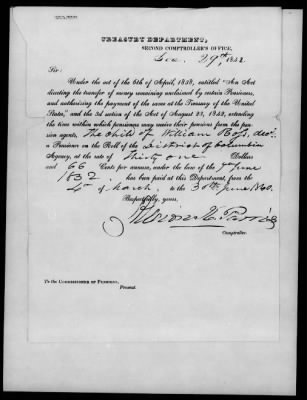 TREASURY DEPARTMENT,
SECOND COMPTROLLER'S OFFICE,
Dec. 29th, 1842.
Sir:
Under the act of the 6th of April, 1838, entitled "An Act
directing the transfer of money remaining unclaimed by certain Pensioners,
and authorizing the payment of the same at the Treasury of the United
States," and the 3d section of the Act of August 23, 1842, extending
the time within which pensioners may receive their pensions from the pen-
sion agents, The child of William Ross, decd.
a Pensioner on the Roll of the District of Columbia
Agency, at the rate of Thirty one Dollars
and 66 Cents per annum, under the law of the 7th June
1832, has been paid at this Department, from the
4th of March, to the 30th June 1840.
Respectfully, yours,
Albion K. Parris
Comptroller.
To the COMMISSIONER OF PENSIONS,
Present.